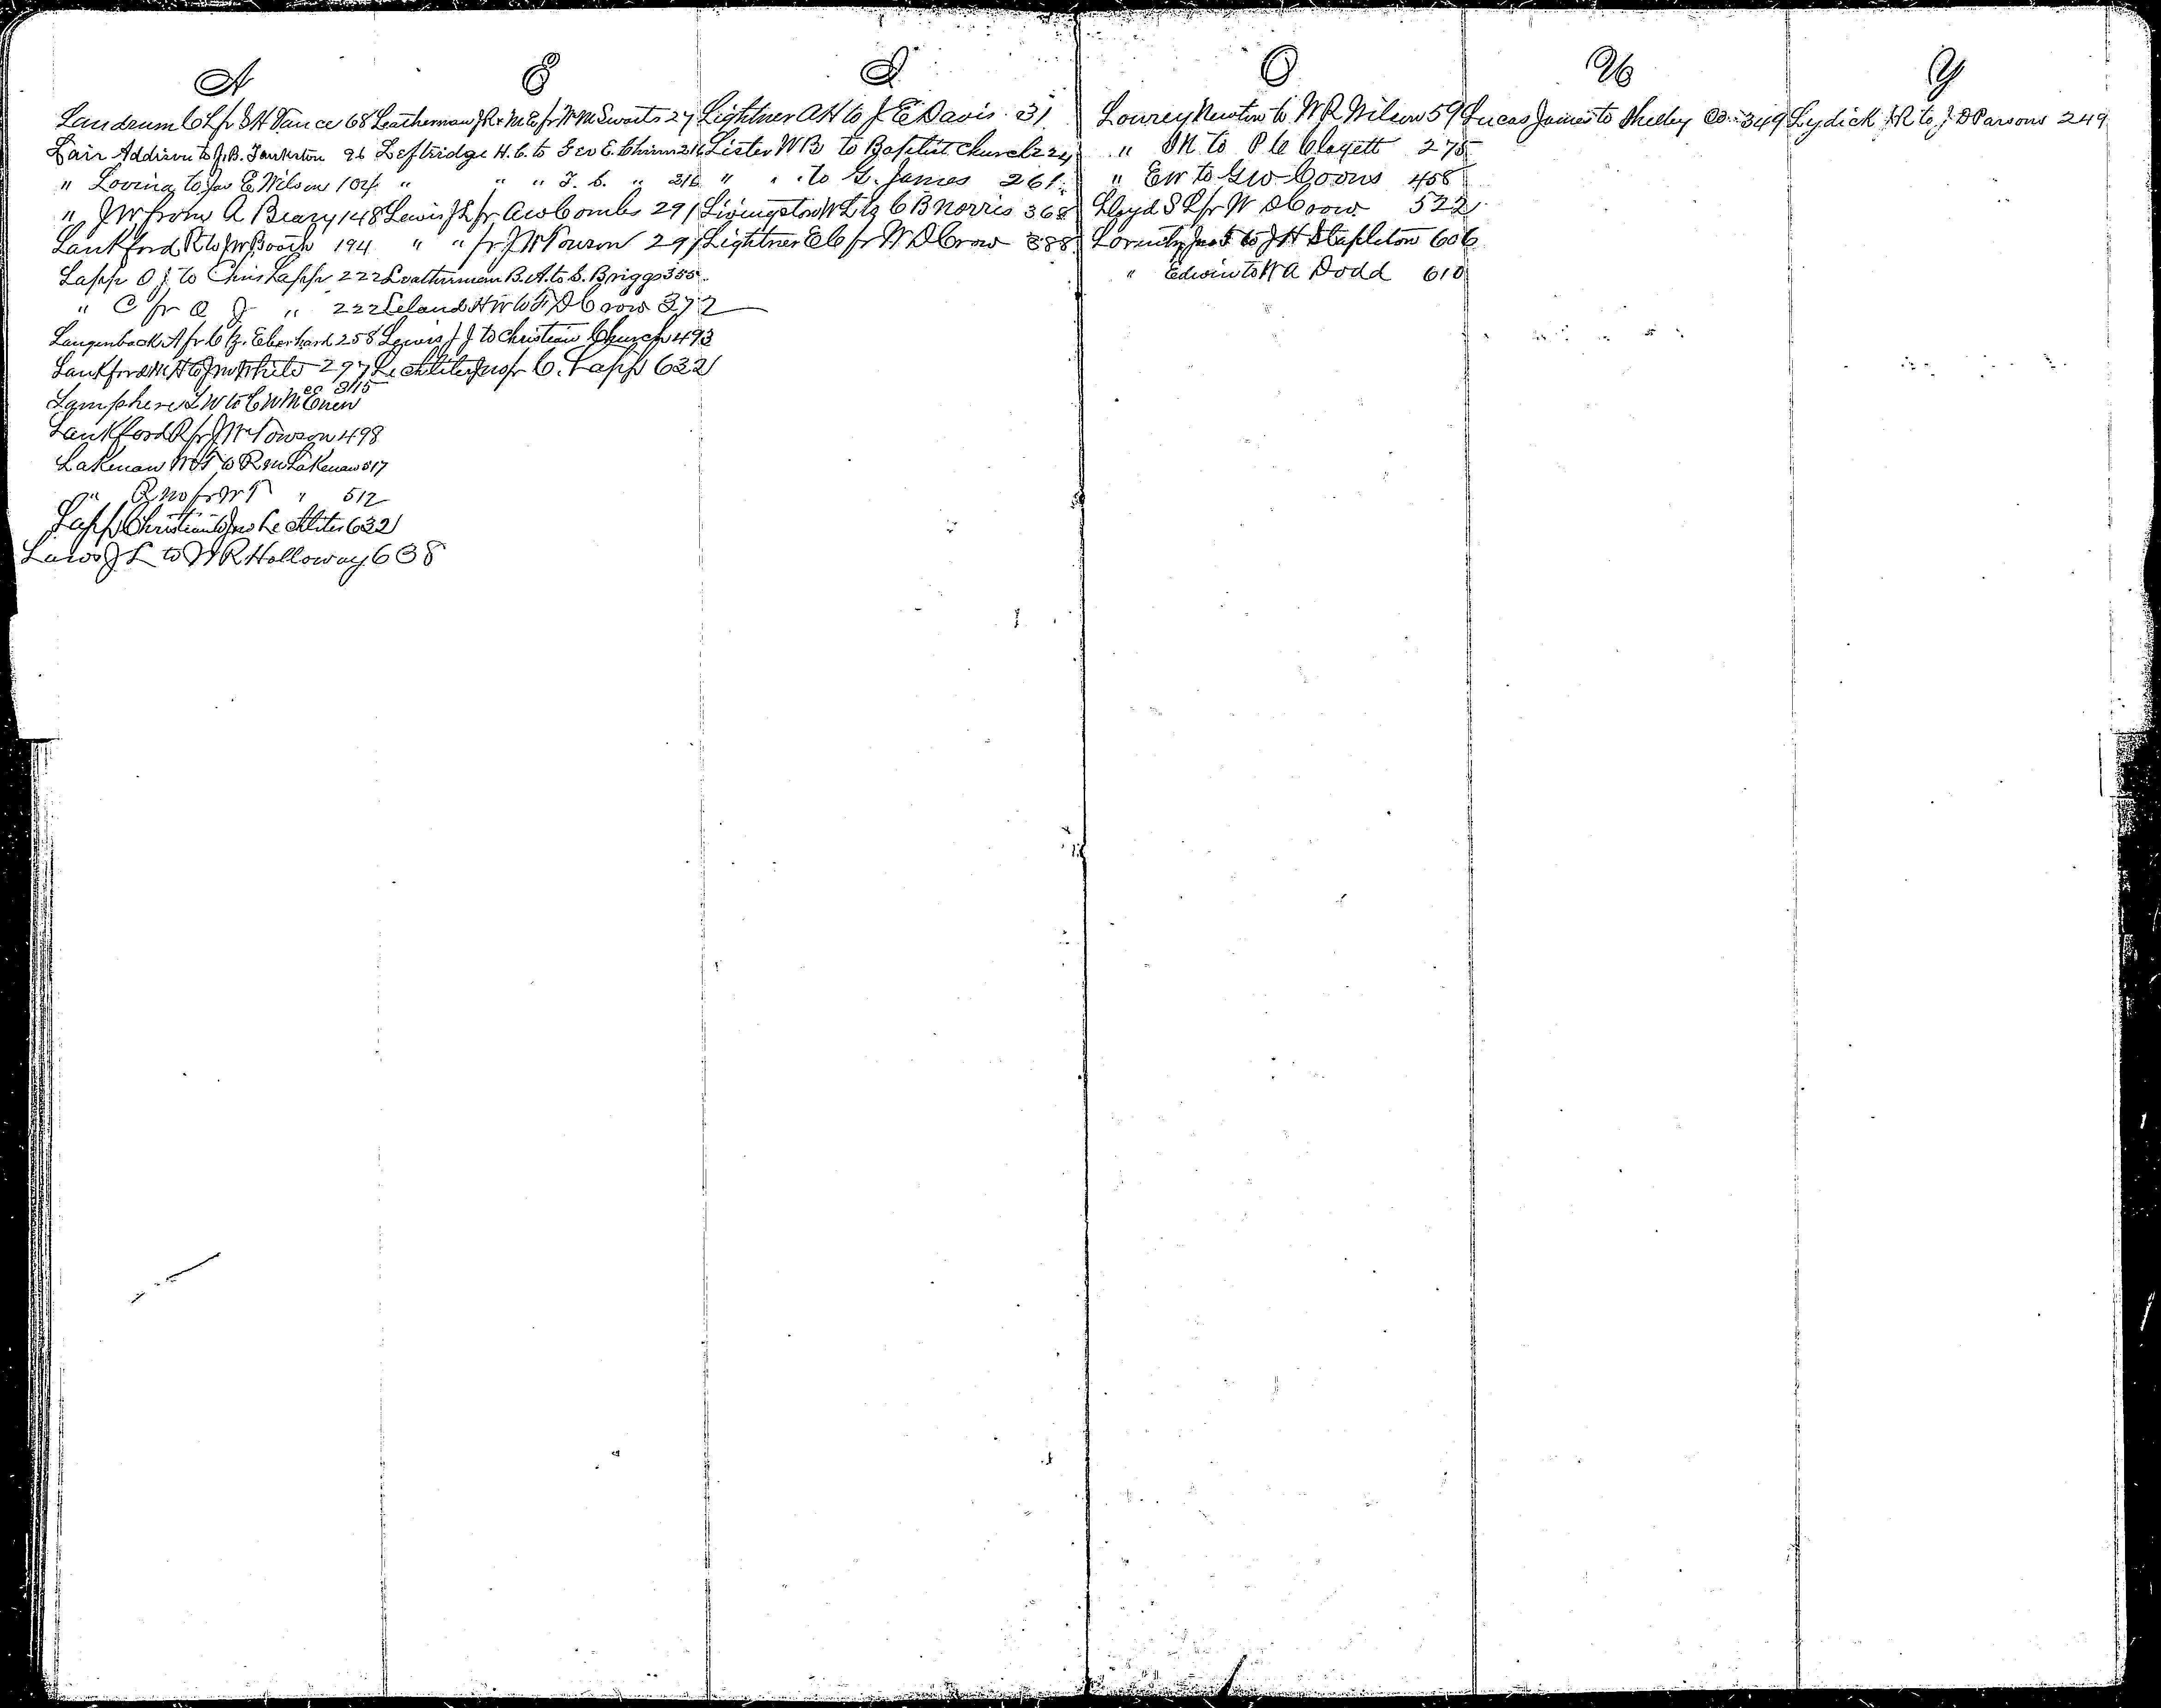 A
Landrum C L fr S H Vance 68
Lair Addison to J. B. Tankerton 96
" Lovina to Jas E Wilson 104
" J W from A Beazy 148
Lankford R to J W Booth 194
Lapp O J to Chris Lapp 222
" C fr O J " 222
Langenback A fr C G. Eberhard 258
Lankford to Jno White 297
Lamphere L W to C W McEuen 315
Lankford R fr J W Towson 498
Lakenan W T to R M Lakenan 517
" R M fr W T " 512
Lapp Christian to Jno Lechliter 632
Laws J L to W R Holloway 638
E
Leatherman J R & M E fr W M Swarts 27
Leftridge H. C. to Geo E. Chinn 216
" " " T. C. " 316
Lewis J L fr A W Combs 291
" " fr J W Towson 291
Leatherman B. A. to S. Briggs 355
Leland H W to F D Crow 372
Lewis J J to Christian Church 493
Lechliter Jno fr C. Lapp 632
I
Lightner A H to J E Davis 31
Lister W B to Baptist Church 224
" " to G. James 261
Livingston W L to C B Norris 368
Lightner E C fr W D Crow 388
O
Lowrey Newton to W R Wilson 59
" to P C Clayett 275
" E W to G W Coons 458
Lloyd S L fr W D Crow 522
to J H Stapleton 606
" Edwin to W A Dodd 610
U
Lucas James to Shelby Co. 349
Y
Lydick J R to J D Parsons 249